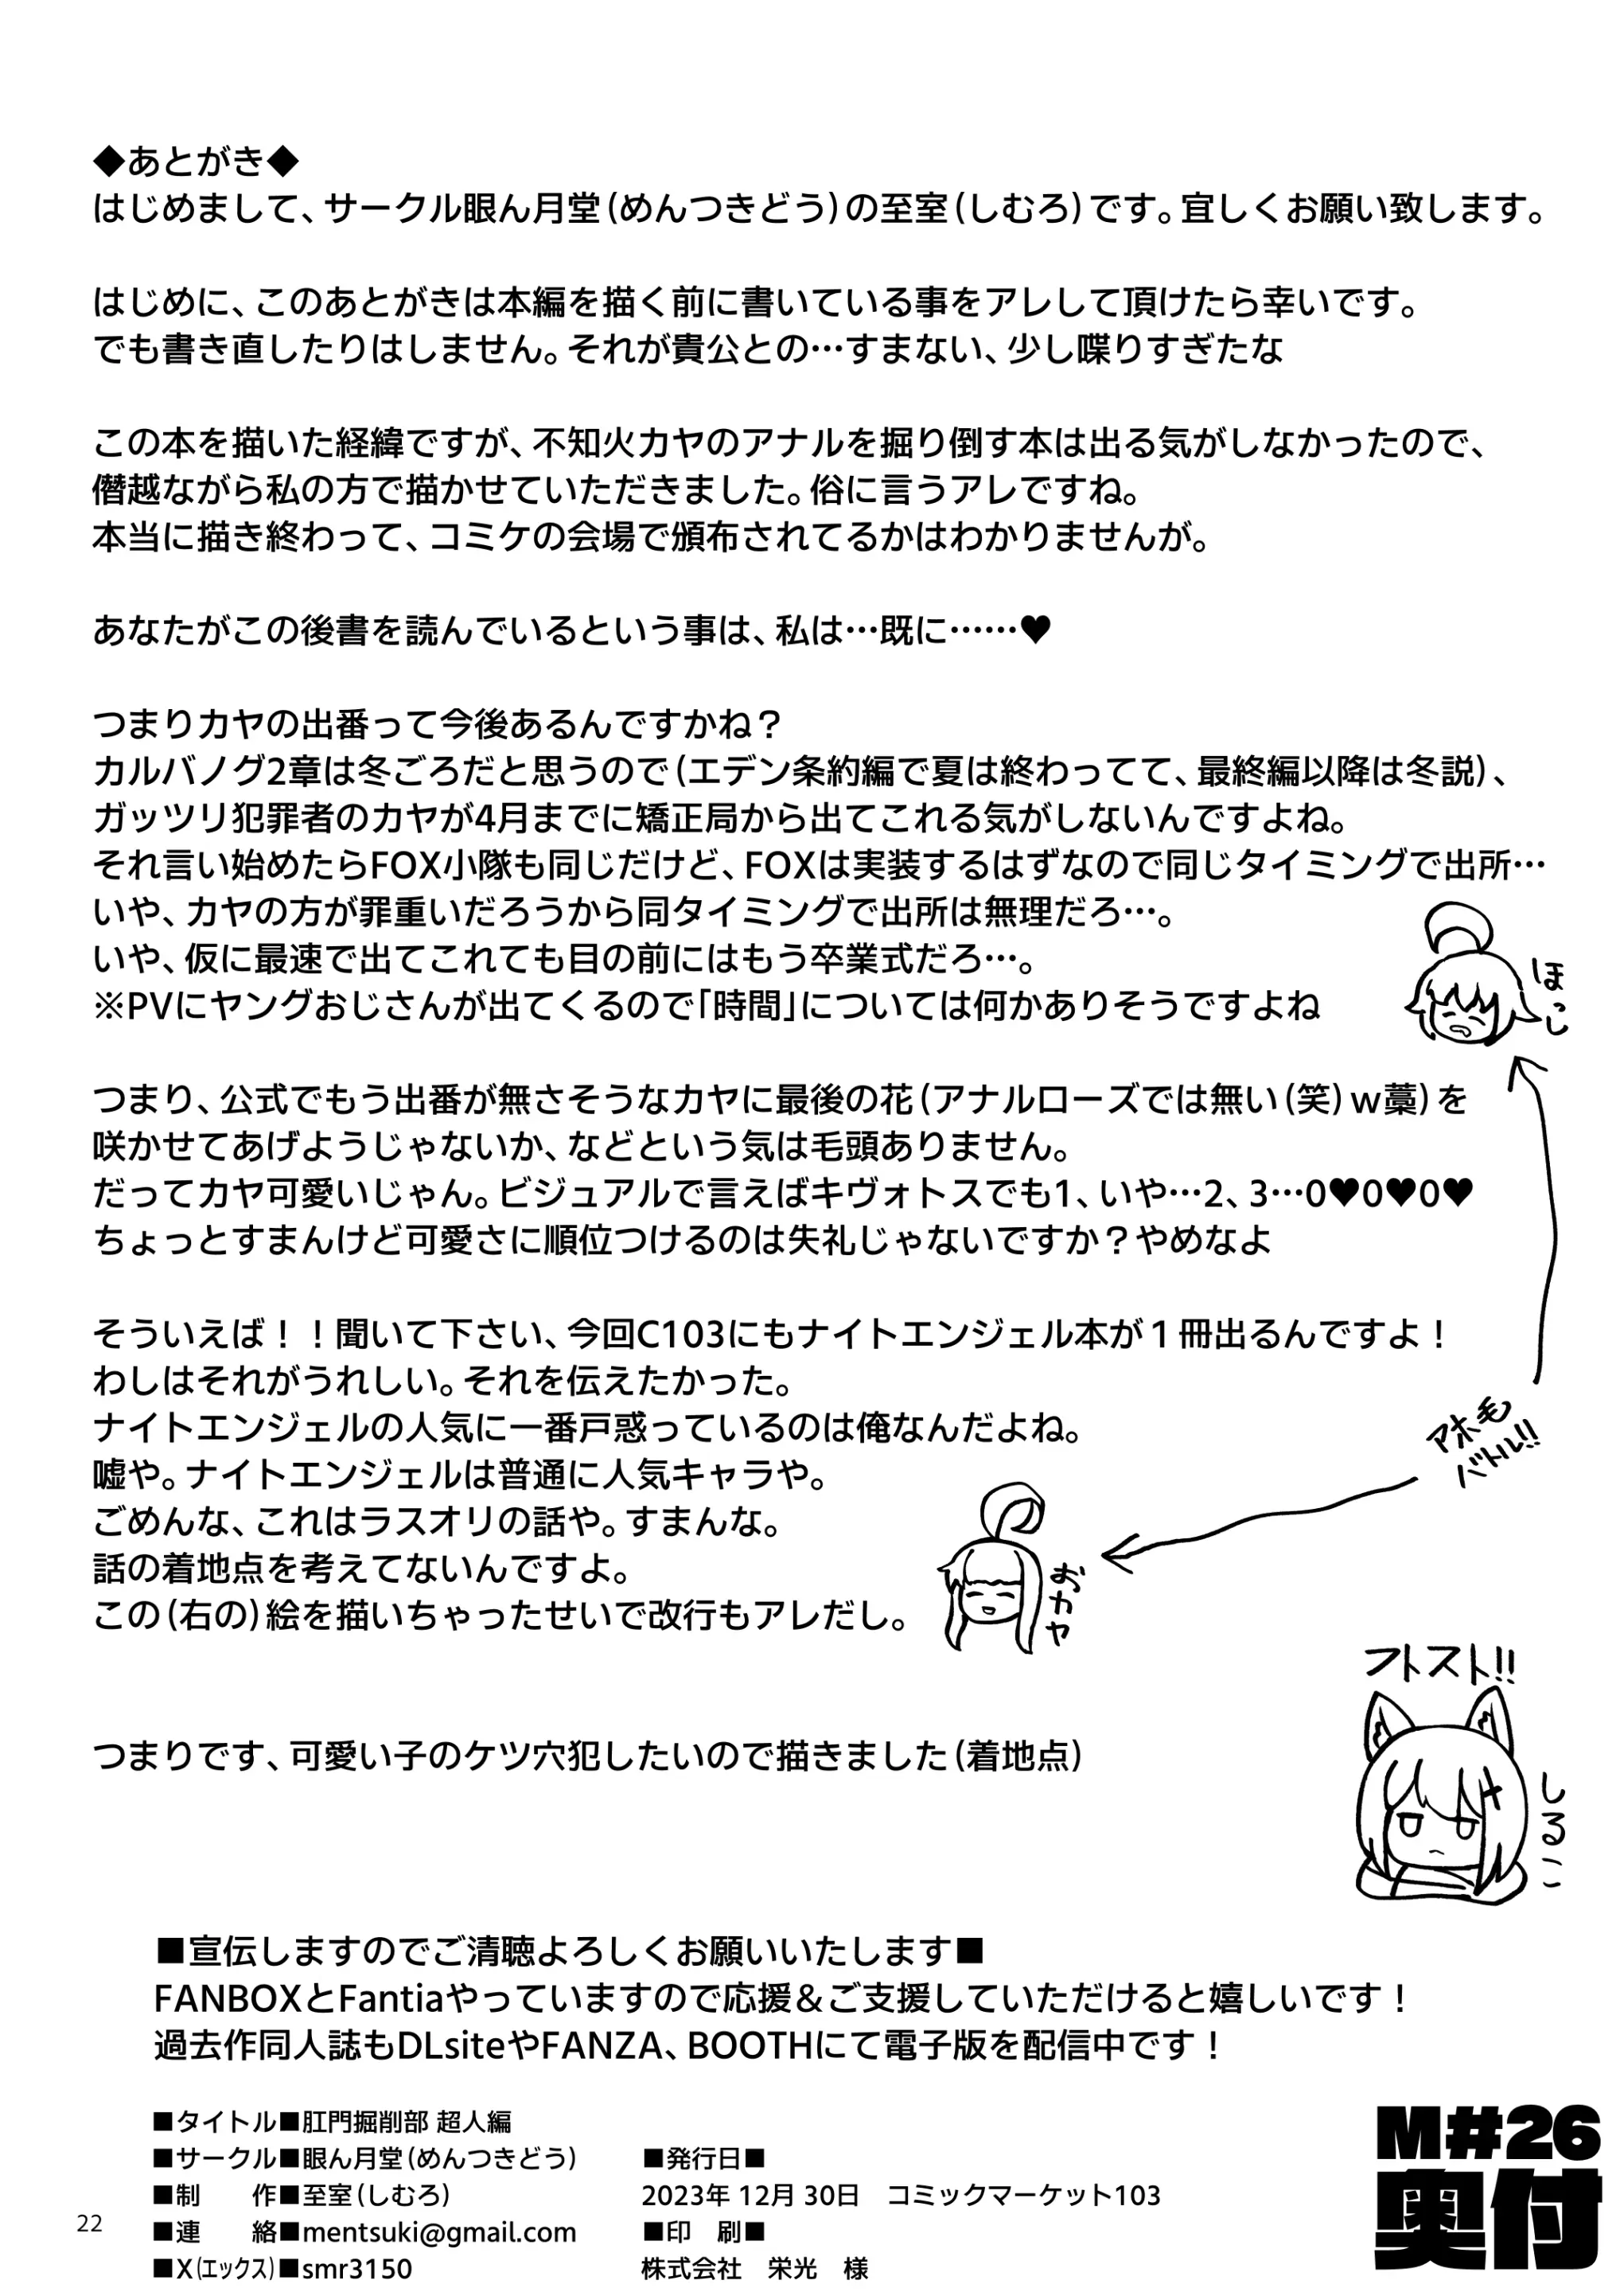 ◆あとがき◆
はじめまして、サークル眼ん月堂（めんつきどう）の至室（しむろ）です。宜しくお願い致します。
はじめに、このあとがきは本編を描く前に書いている事をアレして頂けたら幸いです。
でも書き直したりはしません。それが貴公との…すまない、少し喋りすぎたな
この本を描いた経緯ですが、不知火カヤのアナルを掘り倒す本は出る気がしなかったので、
僭越ながら私の方で描かせていただきました。俗に言うアレですね。
本当に描き終わって、コミケの会場で頒布されてるかはわかりませんが。
あなたがこの後書を読んでいるという事は、私は…既に……♥
つまりカヤの出番って今後あるんですかね？
カルバノグ2章は冬ごろだと思うので（エデン条約編で夏は終わってて、最終編以降は冬説）、
ガッツリ犯罪者のカヤが4月までに矯正局から出てこれる気がしないんですよね。
それ言い始めたらFOX小隊も同じだけど、FOXは実装するはずなので同じタイミングで出所…
いや、カヤの方が罪重いだろうから同タイミングで出所は無理だろ…。
いや、仮に最速で出てこれても目の前にはもう卒業式だろ…。
※PVにヤングおじさんが出てくるので「時間」については何かありそうですよね
ほっし
つまり、公式でもう出番が無さそうなカヤに最後の花（アナルローズでは無い（笑）w藁）を
咲かせてあげようじゃないか、などという気は毛頭ありません。
だってカヤ可愛いじゃん。ビジュアルで言えばキヴォトスでも1、いや…2、3…0♥0♥0♥
ちょっとすまんけど可愛さに順位つけるのは失礼じゃないですか？やめなよ
そういえば！！聞いて下さい、今回C103にもナイトエンジェル本が１冊出るんですよ！
わしはそれがうれしい。それを伝えたかった。
ナイトエンジェルの人気に一番戸惑っているのは俺なんだよね。
嘘や。ナイトエンジェルは普通に人気キャラや。
ごめんな、これはラスオリの話や。すまんな。
話の着地点を考えてないんですよ。
この（右の）絵を描いちゃったせいで改行もアレだし。
アホ毛
バトル!!
おカヤ
フトスト!!
しるこ
つまりです、可愛い子のケツ穴犯したいので描きました（着地点）
■宣伝しますのでご清聴よろしくお願いいたします■
FANBOXとFantiaやっていますので応援＆ご支援していただけると嬉しいです！
過去作同人誌もDLsiteやFANZA、BOOTHにて電子版を配信中です！
■タイトル■肛門掘削部 超人編
■サークル■眼ん月堂（めんつきどう）
■制　作■至室（しむろ）
■連　絡■mentsuki@gmail.com
■X（エックス）■smr3150
■発行日■
2023年 12月 30日　コミックマーケット103
■印　刷■
株式会社　栄光　様
M#26
奥付
22